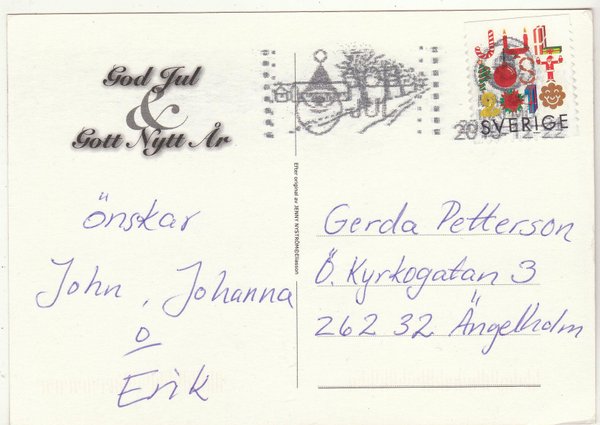 God Jul
&
Gott Nytt År
önskar
John, Johanna
o
Erik
GOD
JUL
JUL
SVERIGE
2013-12-22
Efter original av JENNY NYSTRÖM/Eliasson
Gerda Petterson
Ö. Kyrkogatan 3
262 32 Ängelholm